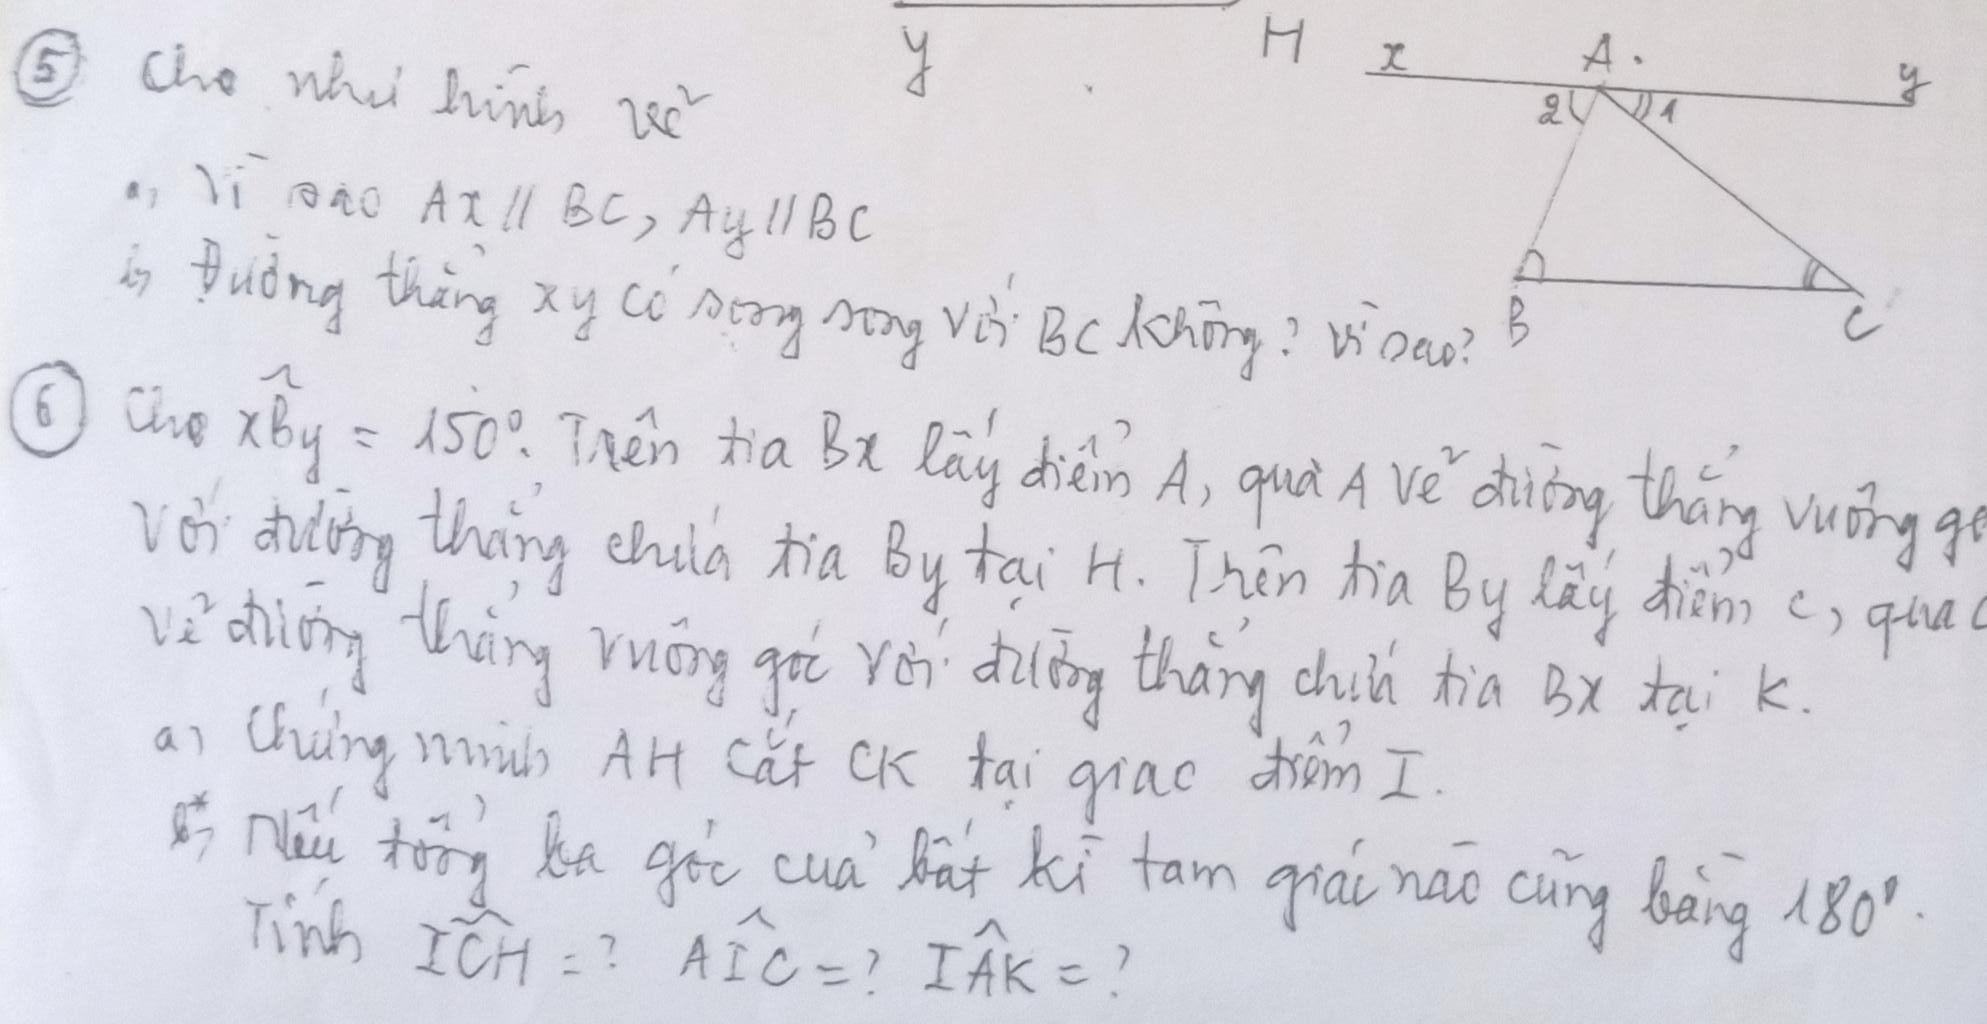 y H x A. y
⑤ Cho như hình vẽ
2 1
a, Vì sao Ax // BC, Ay // BC
b, Đường thẳng xy có song song với BC không? vì sao?
B C
⑥ Cho xBy = 150°. Trên tia Bx lấy điểm A, qua A vẽ đường thẳng vuông gó
với đường thẳng chứa tia By tại H. Trên tia By lấy điểm C, qua C
vẽ đường thẳng vuông góc với đường thẳng chứa tia Bx tại K.
a, Chứng minh AH cắt CK tại giao điểm I.
b*, Nếu tổng ba góc của bất kì tam giác nào cũng bằng 180°.
Tính ICH = ? AIC = ? IAK = ?